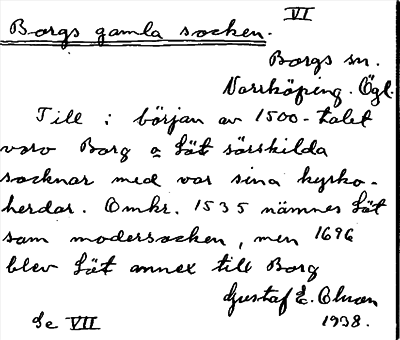 VI
Borgs gamla socken.
Borgs sn.
Norrköping. Ögl.
Till i början av 1500-talet
voro Borg o Löt särskilda
socknar med var sina kyrko-
herdar. Omkr. 1535 nämnes Löt
som modersocken, men 1696
blev Löt annex till Borg
Gustaf E.
Se VII 1938.